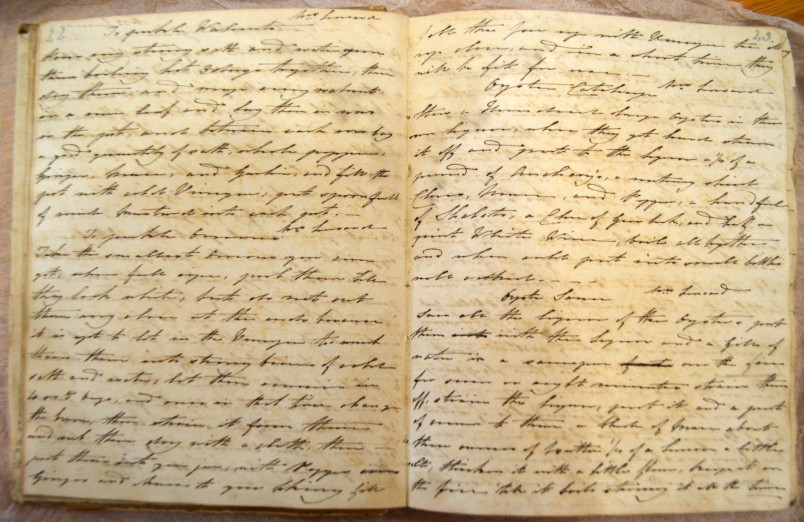 22
Mrs. Howard
To pickle Walnuts
strong salt and water
them boiling hot 3 days together, then
dry them, and wrap every walnut
in a vine leaf and lay them in rows
in the pot, and between each row lay
a good quantity of salt, whole pepper,
Ginger, Mace, and Garlic, and fill the
pot with cold Vinegar, put a spoonfull
of made Mustard into each pot.
To pickle Mrs. Howard
the smallest you can
get, when full ripe, peel them till
they look white, but do not cut
them very close at the ends because
it is apt to let in the Vinegar too much
throw them into strong brine of cold
salt and water, let them remain in
4 or 5 days, and once in that time change
the brine, then strain it from them
and rub them dry with a cloth, then
put them into your jars, with Pepper
Ginger and Mace to your liking fill
23
fill the jars up with Vinegar tie they
up close, and in a short time they
will be fit for use.
Oyster Catchup Mrs. Howard
large Oysters in their
own liquor, when they get hard strain
it off and put to the liquor 1/2 of a
pound of Anchovies, a nutmeg sliced
Cloves, Mace, and Pepper, a handful
of Shalots, a Clove of Garlick, and half a
pint White Wine, boil all together
and when cold put into small bottles
well corked.
Oyster Sauce Mrs. Howard
save all the liquor of the Oysters put
them with the liquor and a gill of
water in a saucepan over the fire
for seven or eight minutes strain them
off, strain the liquor, put it and a pint
of cream to them a blade of mace about
three ounces of butter 1/2 of a lemon a little
salt, thicken it with a little flour, keep it on
the fire till it boils stirring it all the time